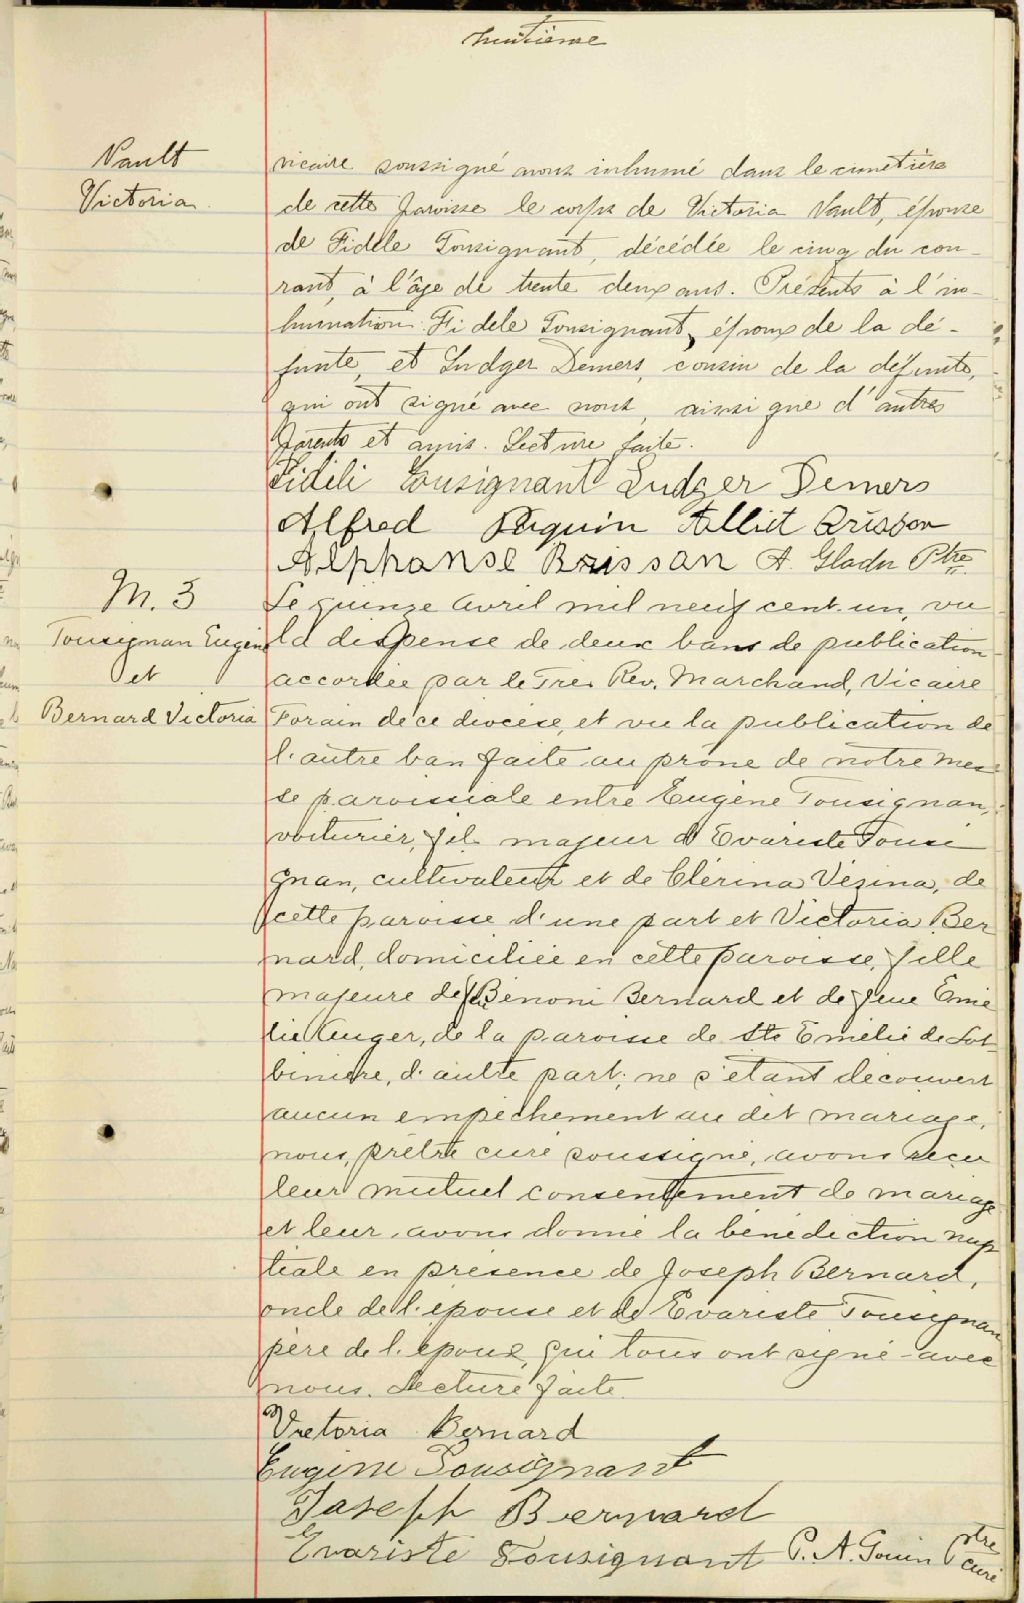 huitième
Vault
Victoria
vicaire soussigné avons inhumé dans le cimetière
de cette paroisse le corps de Victoria Vault, épouse
de Fidèle Tousignant, décédée le cinq du cou-
rant, à l'âge de trente deux ans. Présents à l'in-
humation: Fidele Tousignant, époux de la dé-
funte, et Ludger Demers, cousin de la défunte,
qui ont signé avec nous, ainsi que d'autres
parents et amis. Lecture faite.
Fidéli Tousignant Ludger Demers
Alfred Brisson
Alphonse Brissan A. Gladu Ptre
M. 3
Tousignan Eugène
et
Bernard Victoria
Le quinze Avril mil neuf cent un, vu
la dispense de deux bans de publication
accordée par le Très Rev. Marchand, Vicaire
Forain de ce diocèse, et vu la publication de
l'autre ban faite au prône de notre mes
se paroissiale entre Eugène Tousignan,
voiturier, fils majeur d'Evariste Tousi
gnan, cultivateur et de Clérina Vézina, de
cette paroisse d'une part et Victoria Ber
nard, domiciliée en cette paroisse, fille
majeure de Bénoni Bernard et de feue Emé
lie Auger, de la paroisse de Ste Emélie de Lot
binière, d'autre part; ne s'étant découvert
aucun empêchement au dit mariage,
nous, prêtre curé soussigné, avons reçu
leur mutuel consentement de mariage
et leur avons donné la bénédiction nup
tiale en présence de Joseph Bernard,
oncle de l'épouse et de Evariste Tousignan
père de l'époux, qui tous ont signé avec
nous. Lecture faite.
Victoria Bernard
Eugène Tousignant
Joseph Bernard
Evariste Tousignant P. A. Gouin Ptre
curé